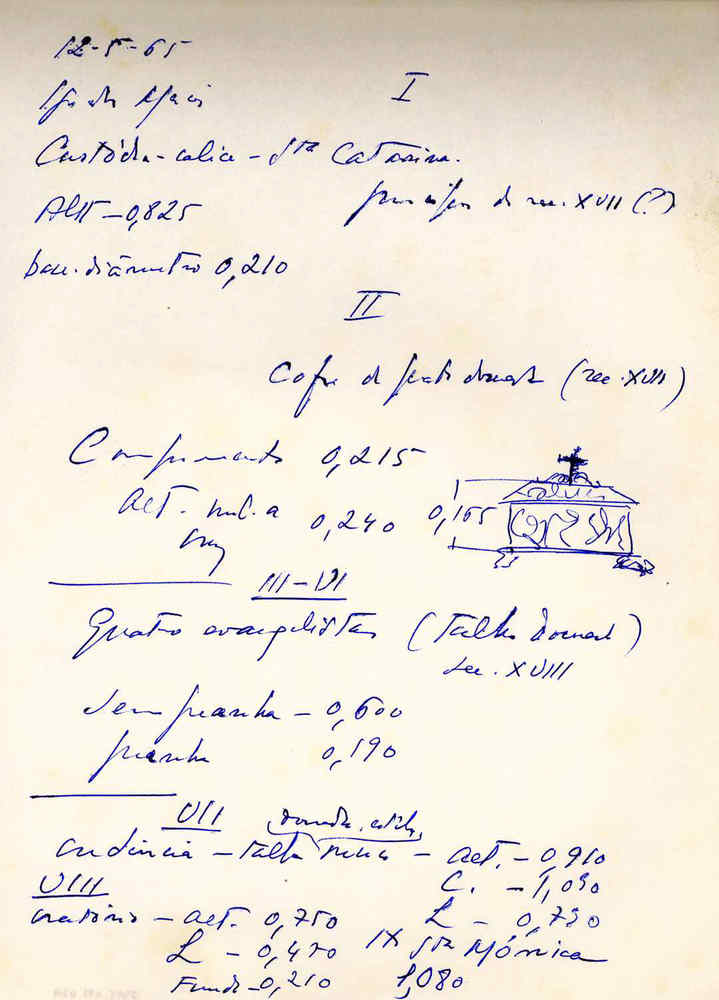 12-5-65
I
Custódia-calice - Sta Catarina.
sec. XVII (?)
Alt - 0,825
base. diâmetro 0,210
II
Cofre de prata dourada (sec. XVIII)
Comprimento 0,215
alt. incl. a cruz 0,240
0,165
III-VI
Quatro evangelistas (talha dourada)
sec. XVIII
Sem peanha - 0,600
peanha 0,190
VII
dourada, estilo
credência - talha - alt. - 0,910
VIII
C. - 1,090
oratório - alt. 0,750
L - 0,730
L - 0,470
IX Sta Mónica
Fundo - 0,210
1,080